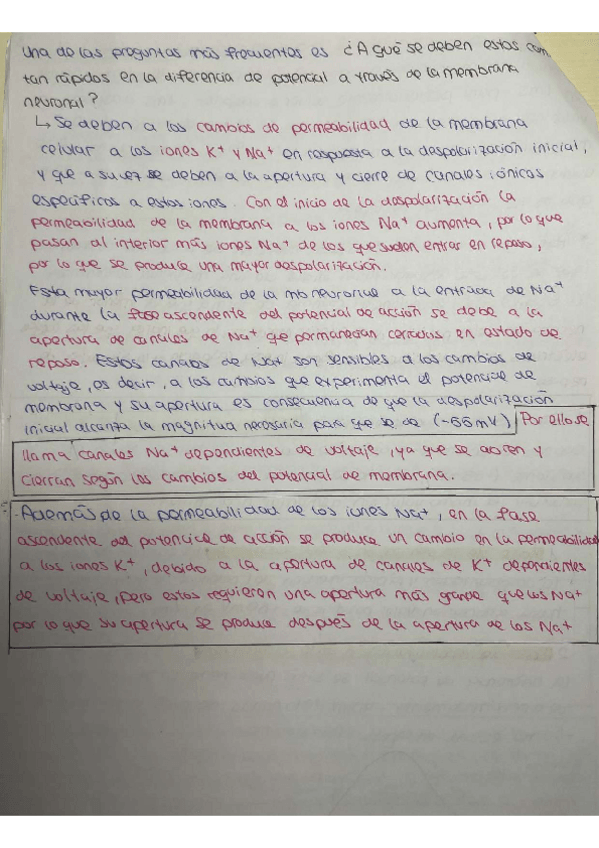 Una de las preguntas más frecuentes es ¿A qué se deben estos cam
tan rápidos en la diferencia de potencial a través de la membrana
neuronal?
↳ Se deben a los cambios de permeabilidad de la membrana
celular a los iones K⁺ y Na⁺ en respuesta a la despolarización inicial,
y que a su vez se deben a la apertura y cierre de canales iónicos
específicos a estos iones. Con el inicio de la despolarización la
permeabilidad de la membrana a los iones Na⁺ aumenta, por lo que
pasan al interior más iones Na⁺ de los que suelen entrar en reposo,
por lo que se produce una mayor despolarización.
Esta mayor permeabilidad de la mb neuronal a la entrada de Na⁺
durante la fase ascendente del potencial de acción se debe a la
apertura de canales de Na⁺ que permanecían cerrados en estado de
reposo. Estos canales de Na⁺ son sensibles a los cambios de
voltaje, es decir, a los cambios que experimenta el potencial de
membrana y su apertura es consecuencia de que la despolarización
inicial alcanza la magnitud necesaria para que se de (-55 mV) Por ello se
llama canales Na⁺ dependientes de voltaje, ya que se abren y
cierran según los cambios del potencial de membrana.
- Además de la permeabilidad de los iones Na⁺, en la fase
ascendente del potencial de acción se produce un cambio en la permeabilidad
a los iones K⁺, debido a la apertura de canales de K⁺ dependientes
de voltaje, pero estos requieren una apertura más grande que los Na⁺
por lo que su apertura se produce después de la apertura de los Na⁺